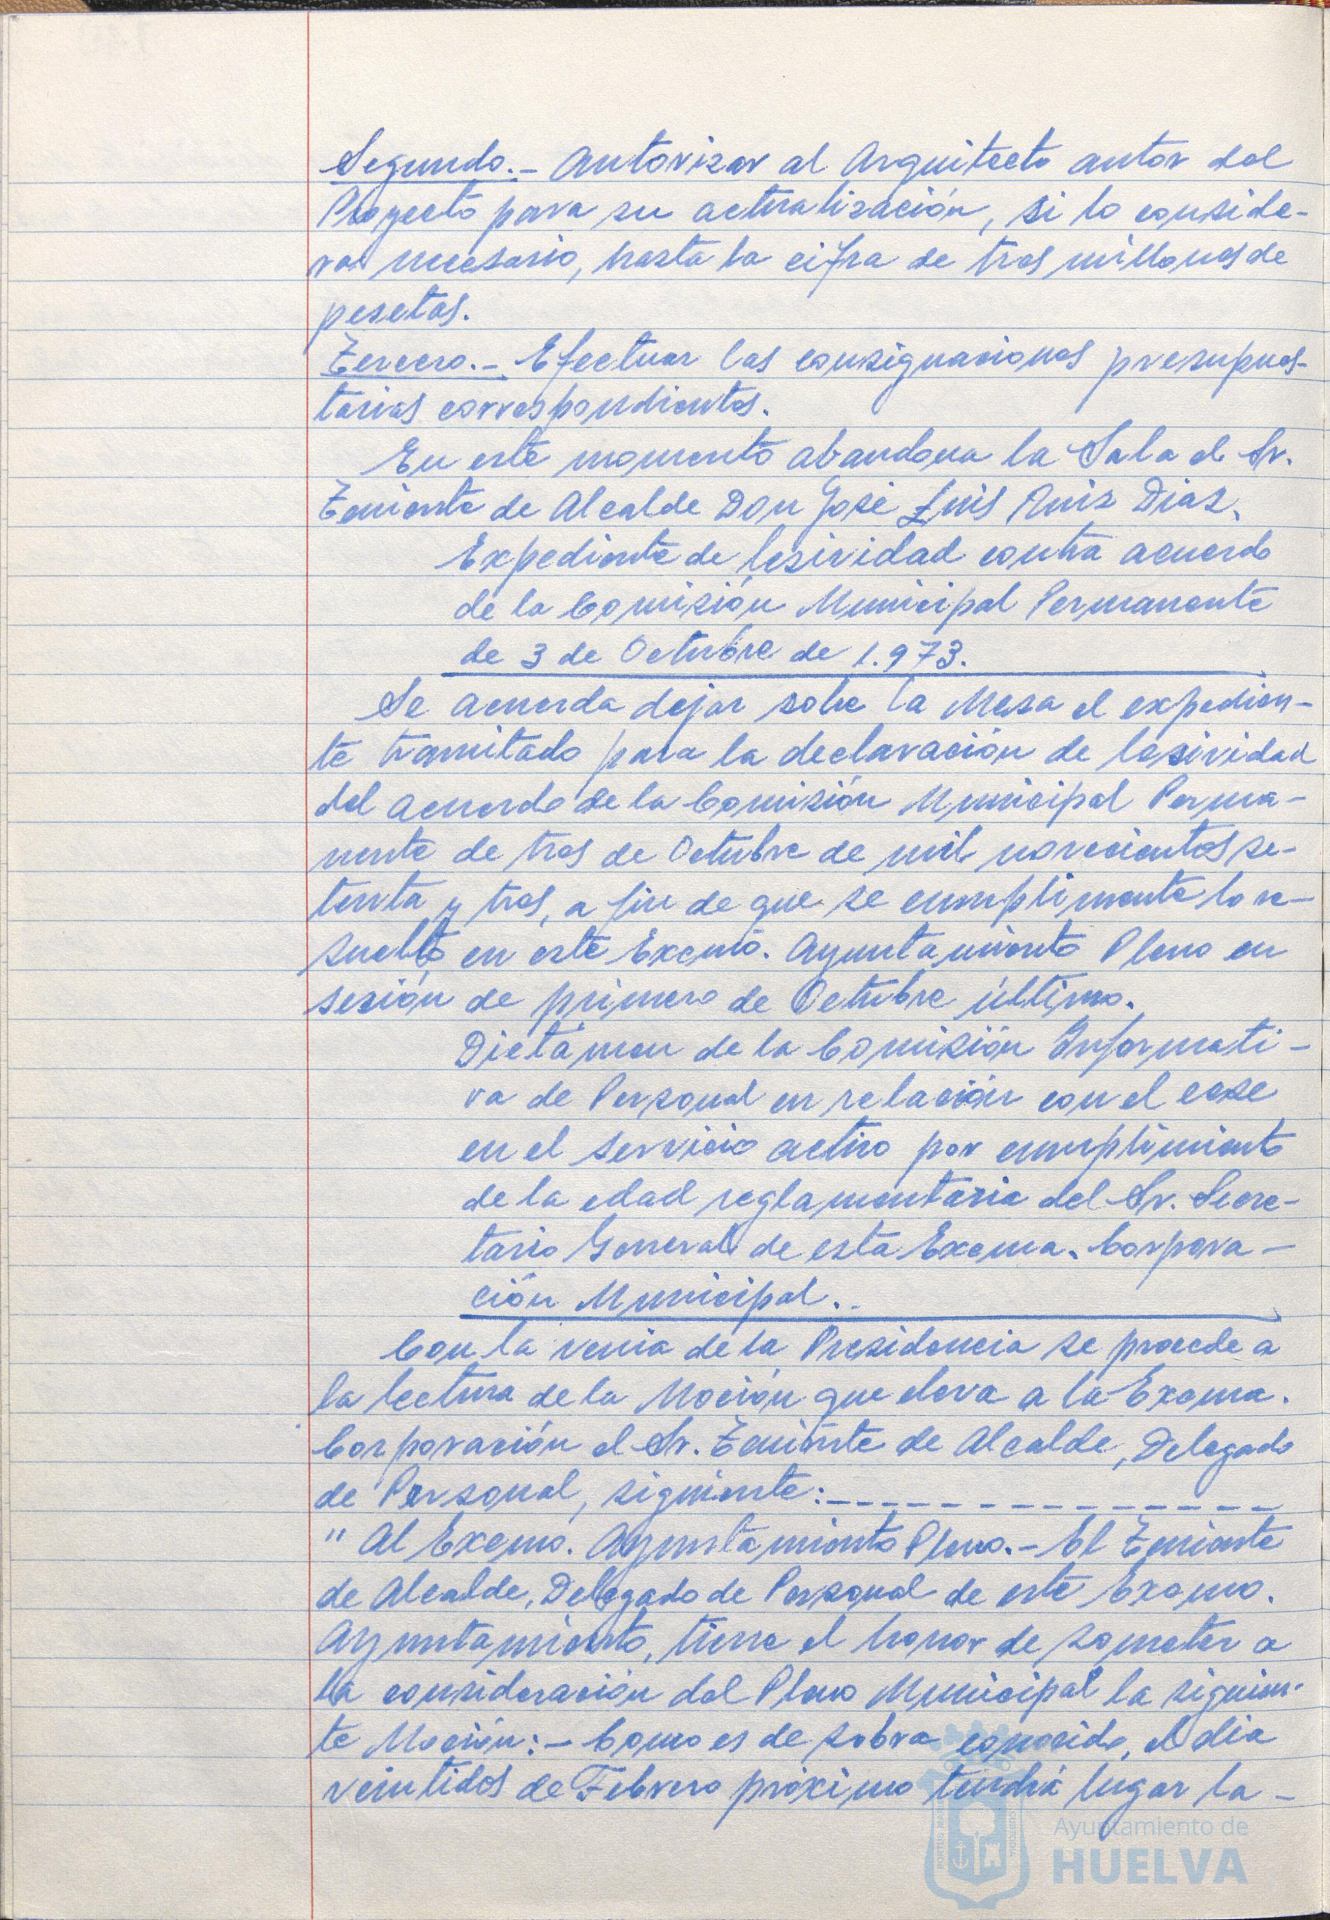 Segundo.- Autorizar al Arquitecto autor del
Proyecto para su actualización, si lo conside-
ra necesario, hasta la cifra de tres millones de
pesetas.
Tercero.- Efectuar las consignaciones presupues-
tarias correspondientes.
En este momento abandona la Sala el Sr.
Teniente de Alcalde Don José Luis Ruiz Diaz.
Expediente de lesividad contra acuerdo
de la Comisión Municipal Permanente
de 3 de Octubre de 1.973.
Se acuerda dejar sobre la Mesa el expedien-
te tramitado para la declaración de lesividad
del acuerdo de la Comisión Municipal Perma-
nente de tres de Octubre de mil novecientos se-
tenta y tres, a fin de que se cumplimente lo re-
suelto en este Excmo. Ayuntamiento Pleno en
sesión de primero de Octubre último.
Dictámen de la Comisión Informati-
va de Personal en relación con el cese
en el servicio activo por cumplimiento
de la edad reglamentaria del Sr. Secre-
tario General de esta Excma. Corpora-
ción Municipal..
Con la venia de la Presidencia se procede a
la lectura de la Moción que eleva a la Excma.
Corporación el Sr. Teniente de Alcalde, Delegado
de Personal, siguiente:---------------
" Al Excmo. Ayuntamiento Pleno.- El Teniente
de Alcalde, Delegado de Personal de este Excmo.
Ayuntamiento, tiene el honor de someter a
la consideración del Pleno Municipal la siguien-
te Moción:- Como es de sobra conocido, el dia
veintidos de Febrero próximo tendrá lugar la -
Ayuntamiento de
HUELVA